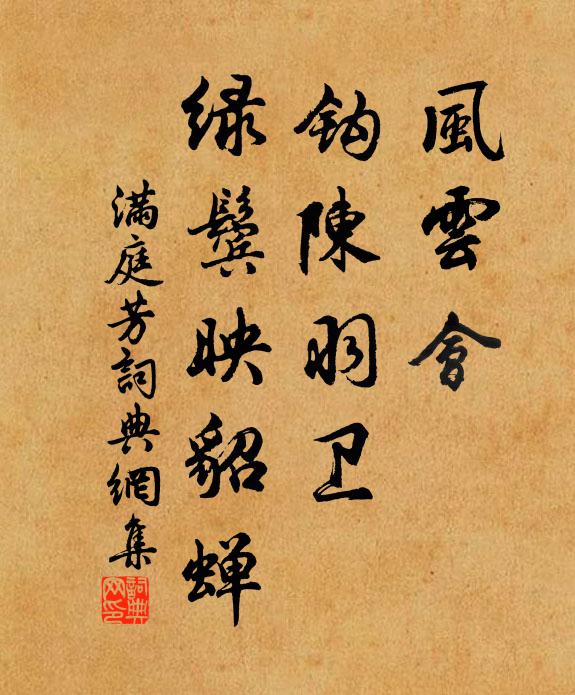 風雲會
鈎陳羽卫
绿鬓映貂蝉
滿庭芳詞典網集
詞典
网印